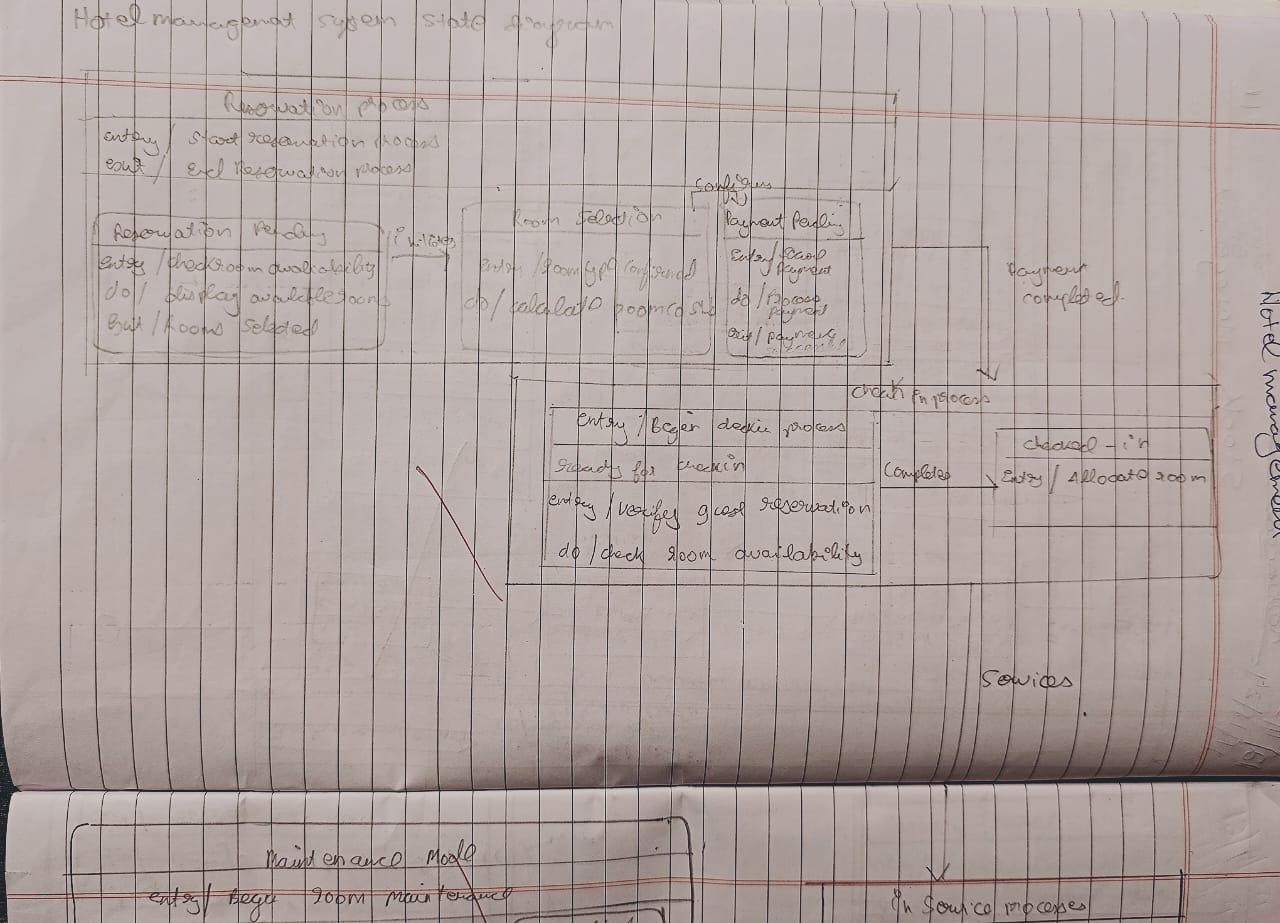 Hotel management system state diagram
Reservation process
entry / start reservation process
exit / End Reservation process
Configus
Reservation Pending
entry / check room availability
do / display available rooms
exit / Rooms Selected
initiates
Room Selection
entry / room type confirmed
do / calculate room cost
Payment Pending
Entry /
Payment
do / Process
payment
exit / payment
Payment
completed.
check in process
entry / Begin process
ready for checkin
entry / verify guest reservation
do / check room availability
Completes
checked-in
Entry / Allocate room
Services
Maintenance Mode
entry / Begin room maintenance
In Service processes
Hotel management